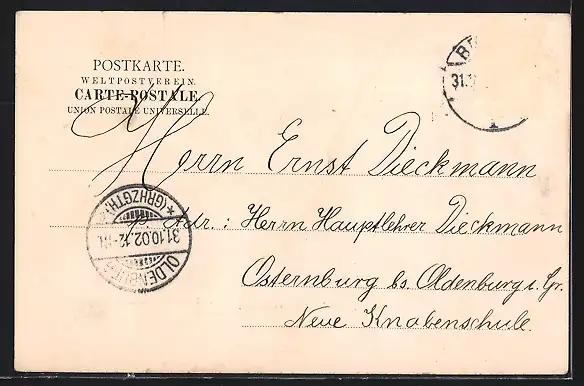 POSTKARTE.
WELTPOSTVEREIN.
CARTE-POSTALE.
UNION POSTALE UNIVERSELLE.
31.
Herrn Ernst Dieckmann
Adr.: Herrn Hauptlehrer Dieckmann
Osternburg bs. Oldenburg i. Gr.
Neue Knabenschule.
OLDENBURG
31.10.02.12-
*(GRHZGTH.)